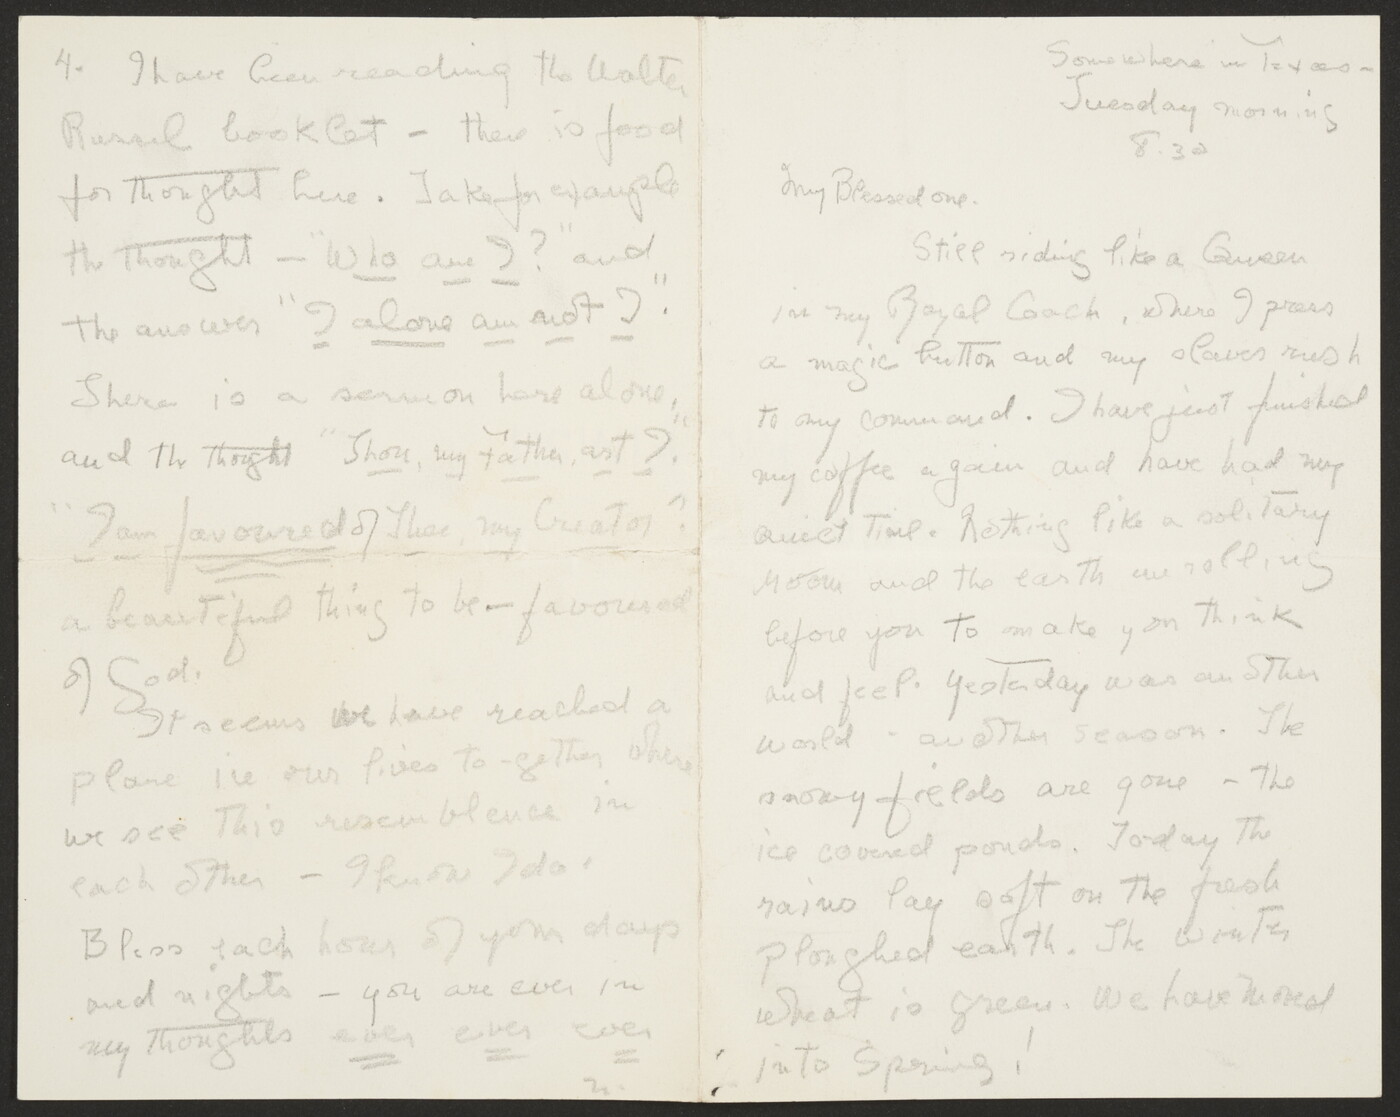 4. I have been reading the Walter
Russell booklet – there is food
for thought here. Take for example
the thought – "Who am I?" and
the answer "I alone am not I".
There is a sermon here alone,
and the thought "Thou, my Father, art I."
"I am favoured of Thee, my Creator"
a beautiful thing to be – favoured
of God.
It seems we have reached a
plane in our lives to-gether where
we see this resemblence in
each other – I know I do.
Bless each hour of your days
and nights – you are ever in
my thoughts ever ever ever
n.
Somewhere in Texas –
Tuesday morning
8.30
My Blessed one.
Still riding like a Queen
in my Royal Coach, where I press
a magic button and my slaves rush
to my command. I have just finished
my coffee again and have had my
quiet time. Nothing like a solitary
room and the earth unrolling
before you to make you think
and feel. Yesterday was another
world – another season. The
snowy fields are gone – the
ice covered ponds. To-day the
rains lay soft on the fresh
ploughed earth. The winter
wheat is green. We have moved
into Spring!